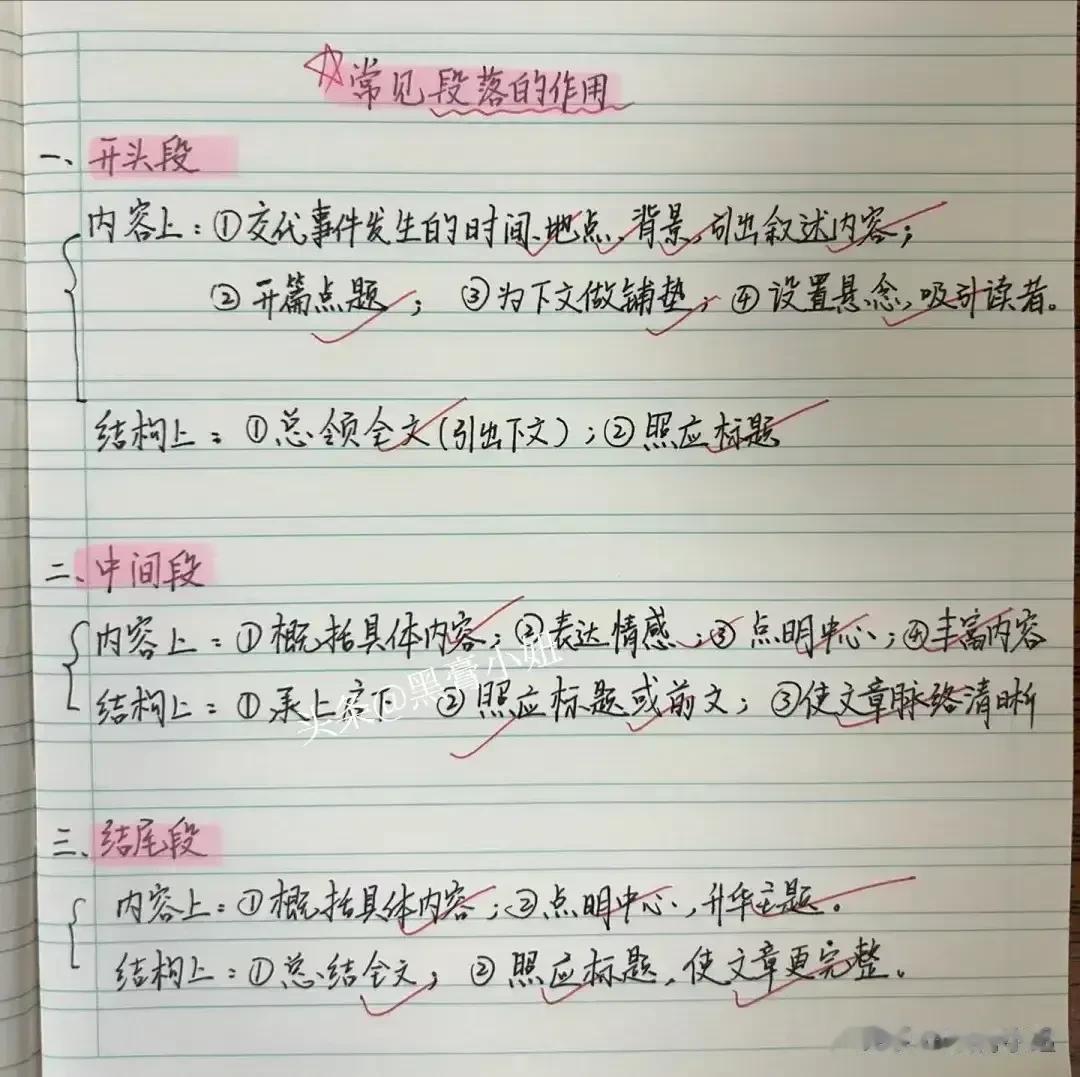 ☆常见段落的作用
一、开头段
内容上：①交代事件发生的时间、地点、背景，引出叙述内容；
②开篇点题；③为下文做铺垫；④设置悬念，吸引读者。
结构上：①总领全文(引出下文)；②照应标题
二、中间段
内容上：①概括具体内容；②表达情感；③点明中心；④丰富内容
结构上：①承上启下 ②照应标题或前文；③使文章脉络清晰
头条@黑膏小妞
三、结尾段
内容上：①概括具体内容；②点明中心，升华主题。
结构上：①总结全文；②照应标题，使文章更完整。